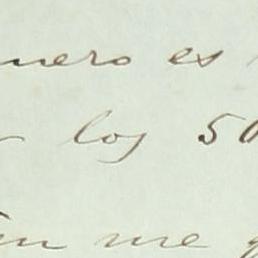 nero es
los 50
me